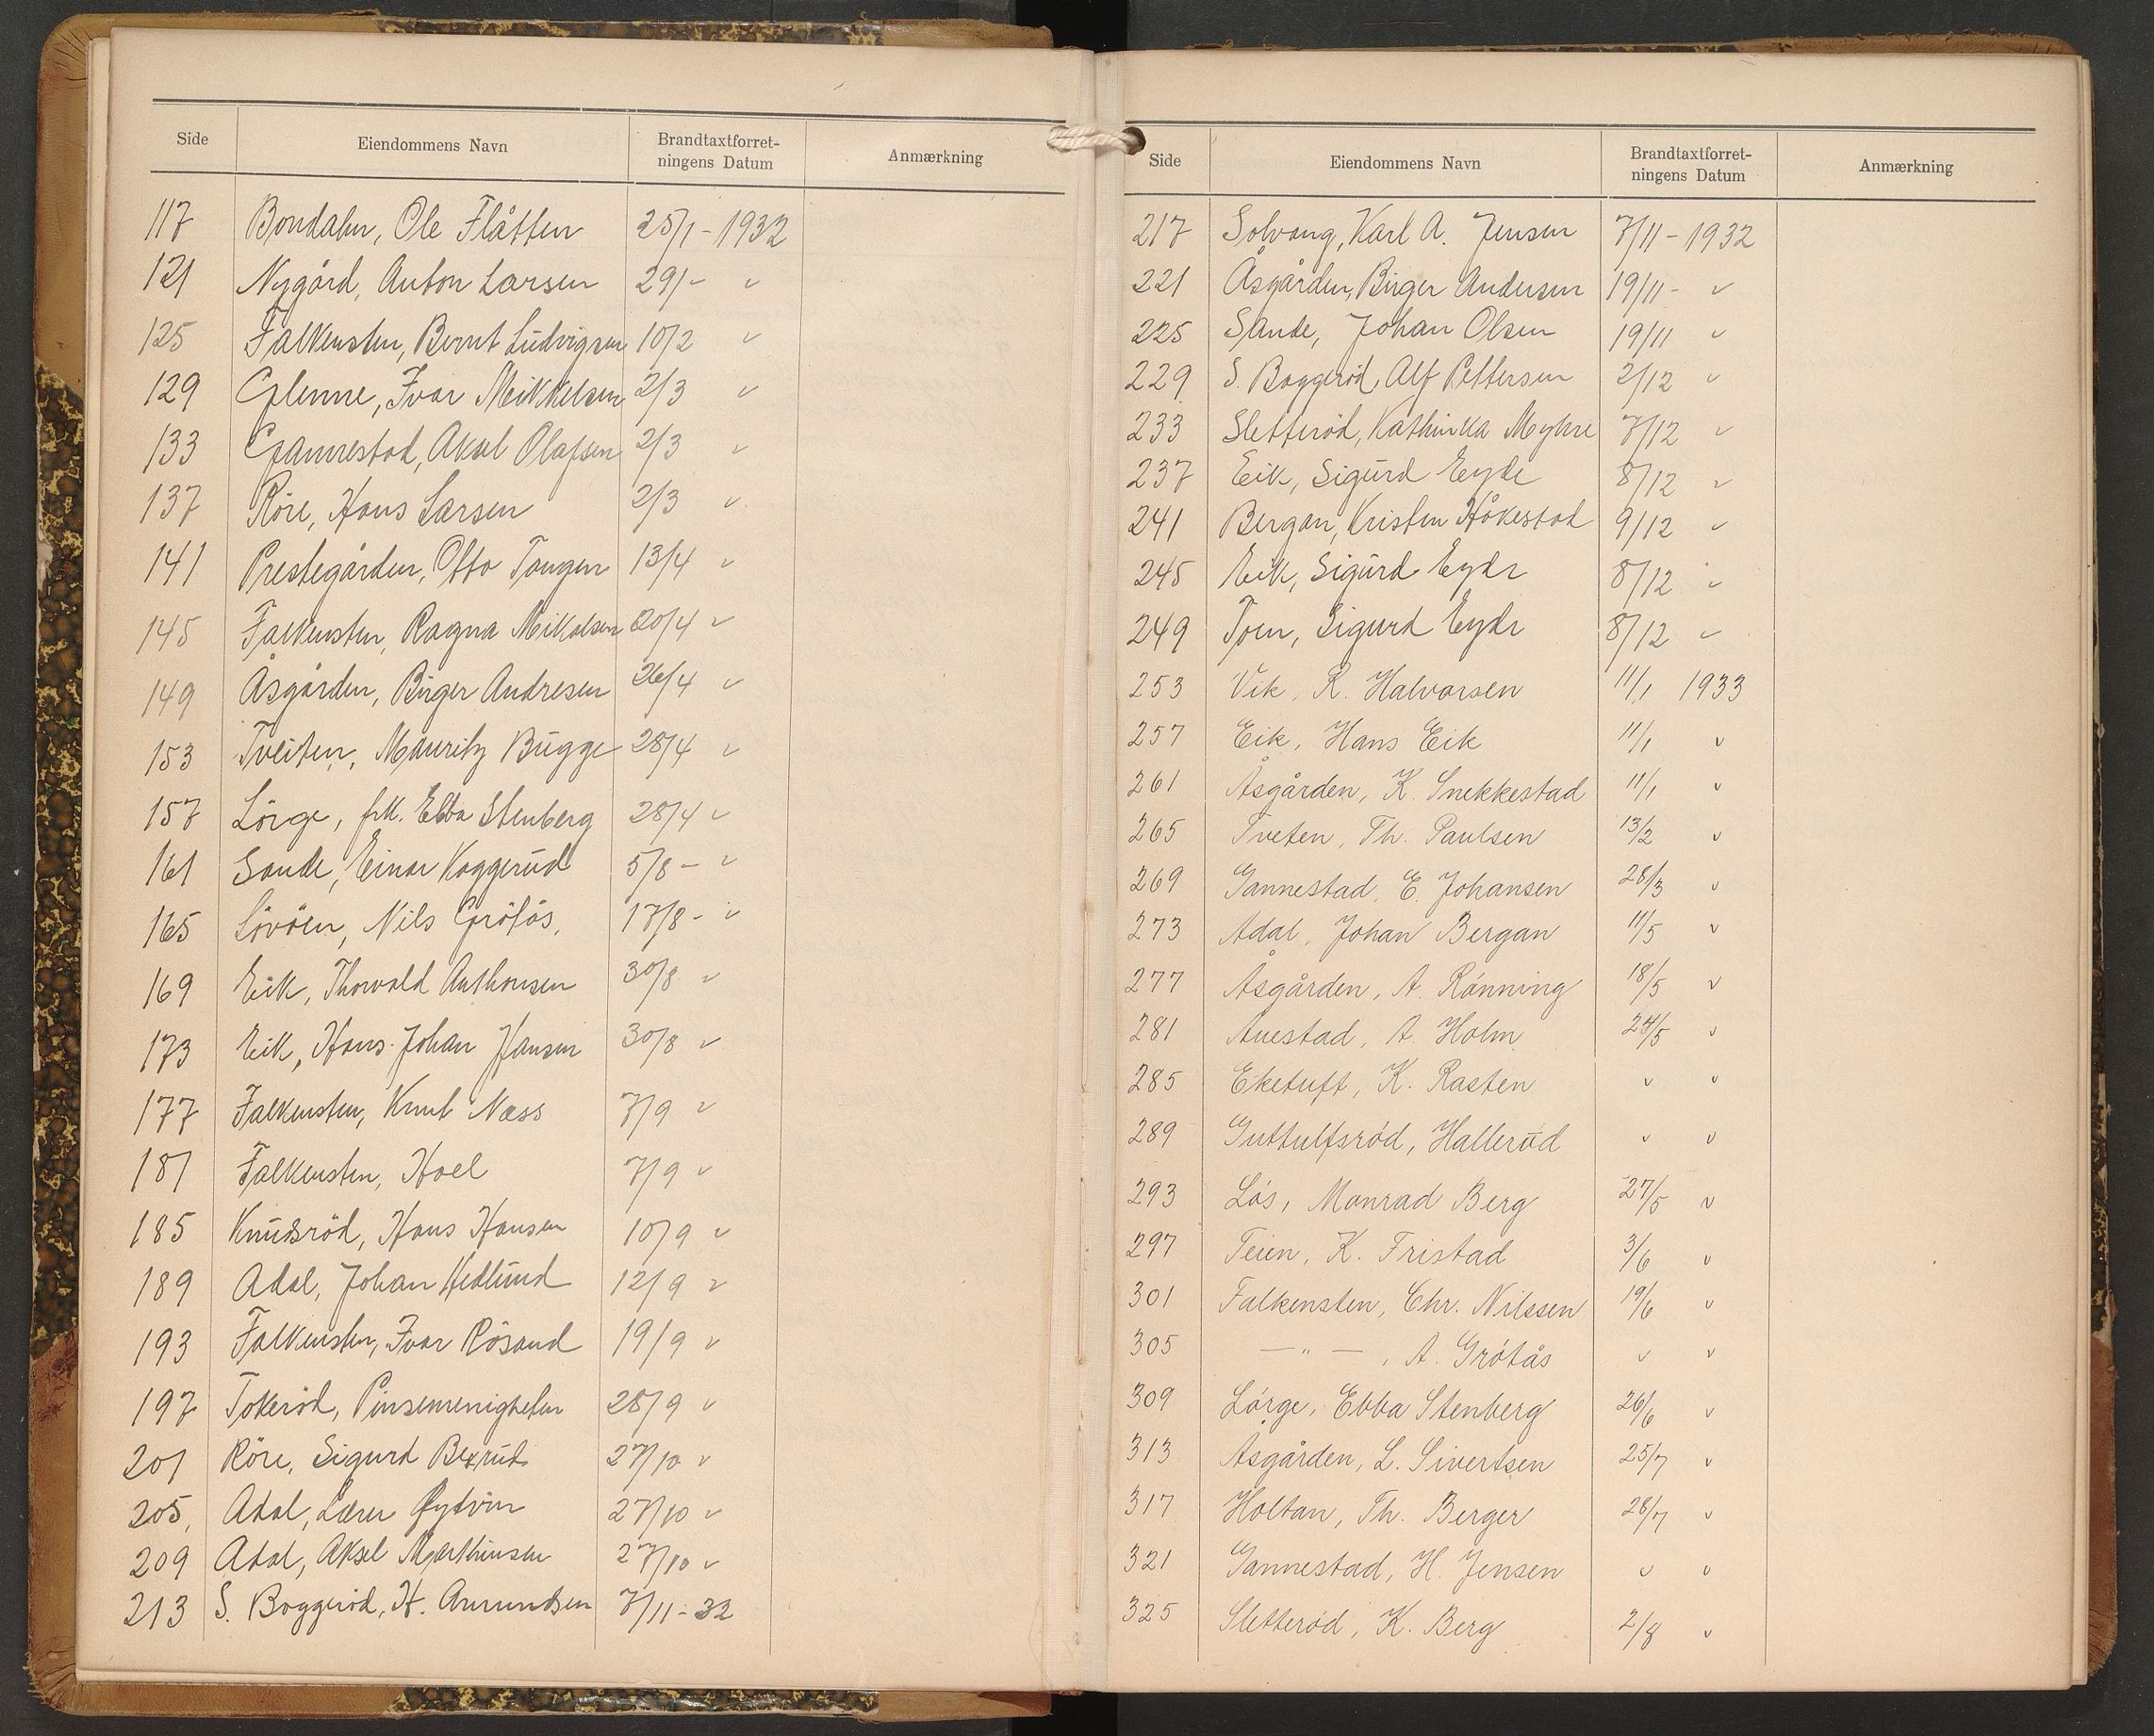 Side Eiendommens Navn Brandtaxtforret- Anmærkning
ningens Datum
117 Bondalen, Ole Flåtten 25/1 - 1932
121 Nygård, Anton Larsen 29/- "
125 Falkensten, Bernt Ludvigsen 10/2 "
129 Glenne, Ivar Mikkelsen 2/3 "
133 Gannestad, Aksel Olafsen 2/3 "
137 Röre, Hans Larsen 2/3 "
141 Prestegården, Otto Tangen 13/4 "
145 Falkensten, Ragna Mikalsen 20/4 "
149 Åsgården, Birger Andresen 26/4 "
153 Tveiten, Mauritz Bugge 28/4 "
157 Lörge, frk. Ebba Stenberg 28/4 "
161 Sande, Einar Koggerud 5/8 - "
165 Lövöen, Nils Grötås, 17/8 - "
169 Eik, Thorvald Anthonsen 30/8 "
173 Eik, Hans Johan Hansen 30/8 "
177 Falkensten, Knut Næss 7/9 "
181 Falkensten, Hoel 7/9 "
185 Knudsröd, Hans Hansen 10/9 "
189 Adal, Johan Hedlund 12/9 "
193 Falkensten, Ivar Rösand 19/9 "
197 Tokeröd, Pinsemenigheten 28/9 "
201 Röre, Sigurd Bexrud 27/10 "
205, Adal, Lærer Øydvin 27/10 "
209 Adal, Aksel Marthinsen 27/10 "
213 S. Boggeröd, H. Amundsen 7/11 - 32
Side Eiendommens Navn Brandtaxtforret- Anmærkning
ningens Datum
217 Solvang, Karl A. Jensen 7/11 - 1932
221 Åsgården, Birger Andersen 19/11 - "
225 Sande, Johan Olsen 19/11 "
229 S. Boggeröd, Alf Pettersen 2/12 "
233 Sletteröd, Kathinka Myhre 7/12 "
237 Eik, Sigurd Eyde 8/12 "
241 Bergan, Kristen Håkestad 9/12 "
245 Eik, Sigurd Eyde 8/12 "
249 Tom, Sigurd Eyde 8/12 "
253 Vik, R. Halvorsen 11/1 1933
257 Eik, Hans Eik 11/1 "
261 Åsgården, K. Snekkestad 11/1 "
265 Tveten, Th. Paulsen 13/2 "
269 Gannestad, E. Johansen 28/3 "
273 Adal, Johan Bergan 11/5 "
277 Åsgården, A. Rönning 18/5 "
281 Auestad, A. Holm 24/5 "
285 Eketuft, K. Rasten " "
289 Guttulfsröd, Hallerud " "
293 Lös, Monrad Berg 27/5 "
297 Teien, K. Fristad 3/6 "
301 Falkensten, Chr. Nilssen 19/6 "
305 — " — , A. Grötås " "
309 Lörge, Ebba Stenberg 26/6 "
313 Asgården, L. Sivertsen 25/7 "
317 Holtan, Th. Berger 28/7 "
321 Gannestad, H. Jensen " "
325 Sletteröd, K. Berg 2/8 "